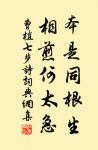 本是同根生
相煎何太急
曹植七步詩詞典網集